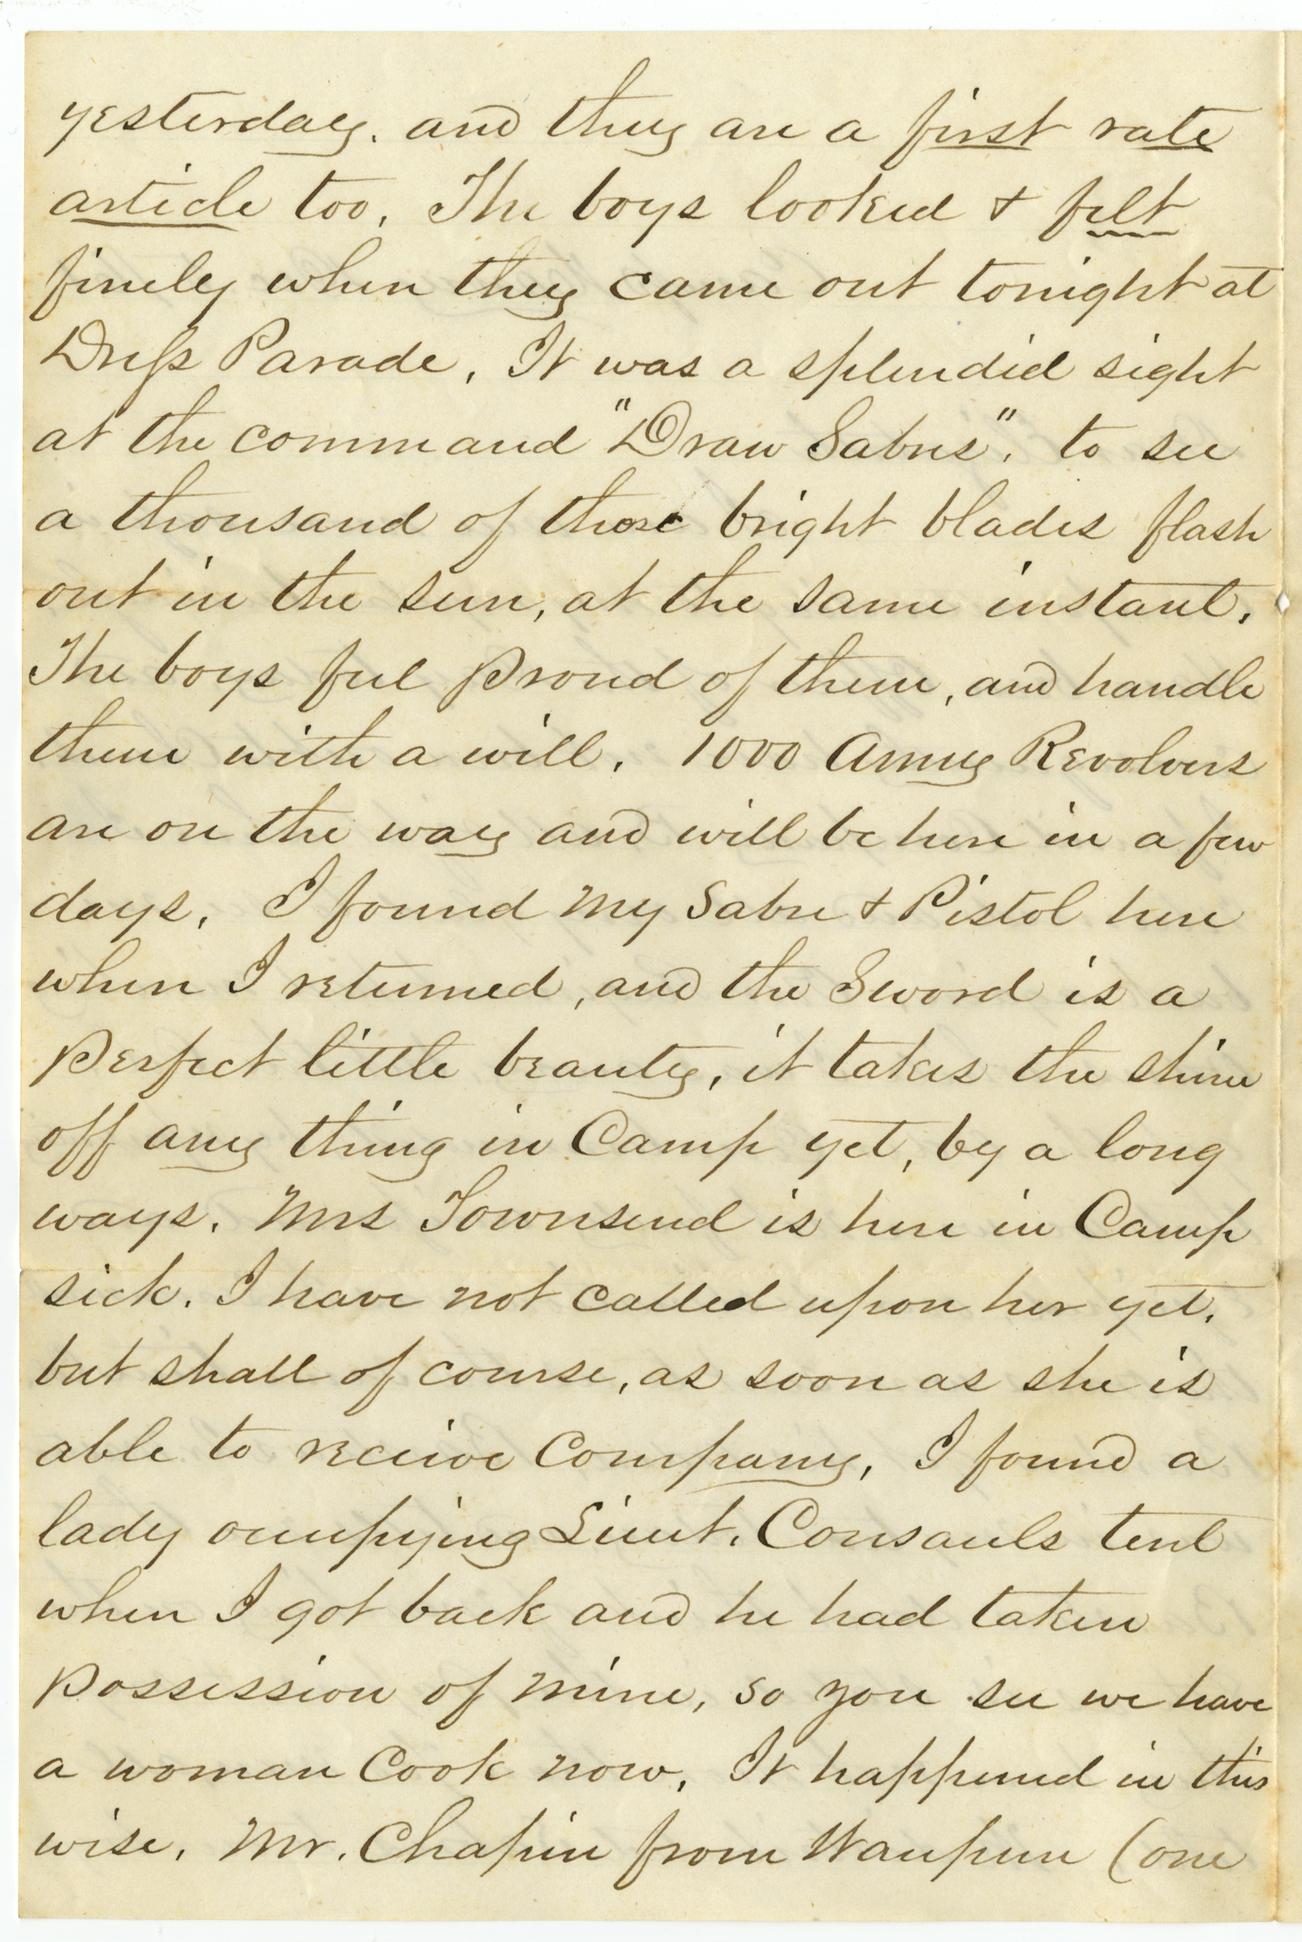 yesterday. and they are a first rate
article too. The boys looked & felt
finely when they came out tonight at
Dress Parade. It was a splendid sight
at the command "Draw Sabres". to see
a thousand of those bright blades flash
out in the sun, at the same instant.
The boys feel proud of them, and handle
them with a will. 1000 Army Revolvers
are on the way and will be here in a few
days. I found my Sabre & Pistol here
when I returned, and the Sword is a
Perfect little beauty, it takes the shine
off any thing in Camp yet, by a long
ways. Mrs Townsend is here in Camp
sick. I have not called upon her yet.
but shall of course, as soon as she is
able to receive Company. I found a
lady occupying Lieut. Consauls tent
when I got back and he had taken
Possession of mine, so you see we have
a woman Cook now. It happened in this
wise. Mr. Chapin from Waupun (one